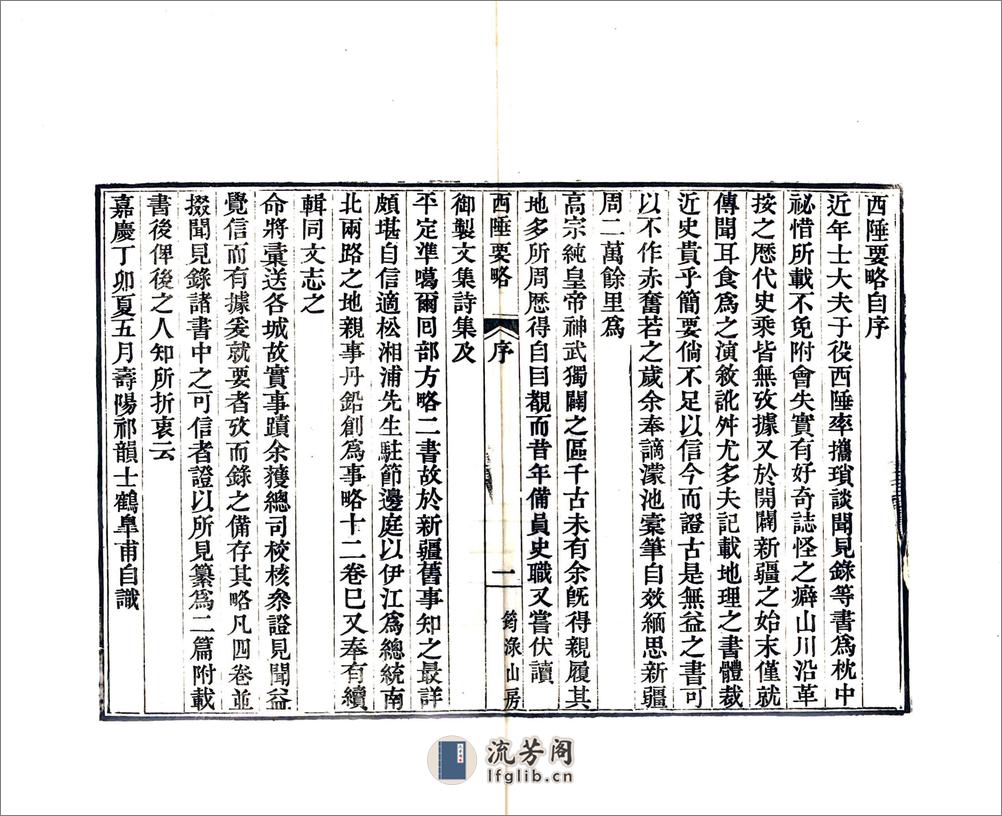 西陲要略自序
近年士大夫于役西陲率攜瑣談聞見錄等書爲枕中
祕惜所載不免附會失實有好奇誌怪之癖山川沿革
按之歷代史乘皆無攷據又於開闢新疆之始末僅就
傳聞耳食爲之演敘訛舛尤多夫記載地理之書體裁
近史貴乎簡要倘不足以信今而證古是無益之書可
以不作赤奮若之歲余奉謫濛池橐筆自效緬思新疆
周二萬餘里爲
高宗純皇帝神武獨闢之區千古未有余旣得親履其
地多所周歷得自目覩而昔年備員史職又嘗伏讀
西陲要略
序
一
筠淥山房
御製文集詩集及
平定準噶爾回部方略二書故於新疆舊事知之最詳
頗堪自信適松湘浦先生駐節邊庭以伊江爲總統南
北兩路之地親事丹鉛創爲事略十二卷巳又奉有續
輯同文志之
命將彙送各城故實事蹟余獲總司校核參證見聞益
覺信而有據爰就要者攷而錄之備存其略凡四卷並
掇聞見錄諸書中之可信者證以所見纂爲二篇附載
書後俾後之人知所折衷云
嘉慶丁卯夏五月壽陽祁韻士鶴皐甫自識
流芳阁
lfglib.cn